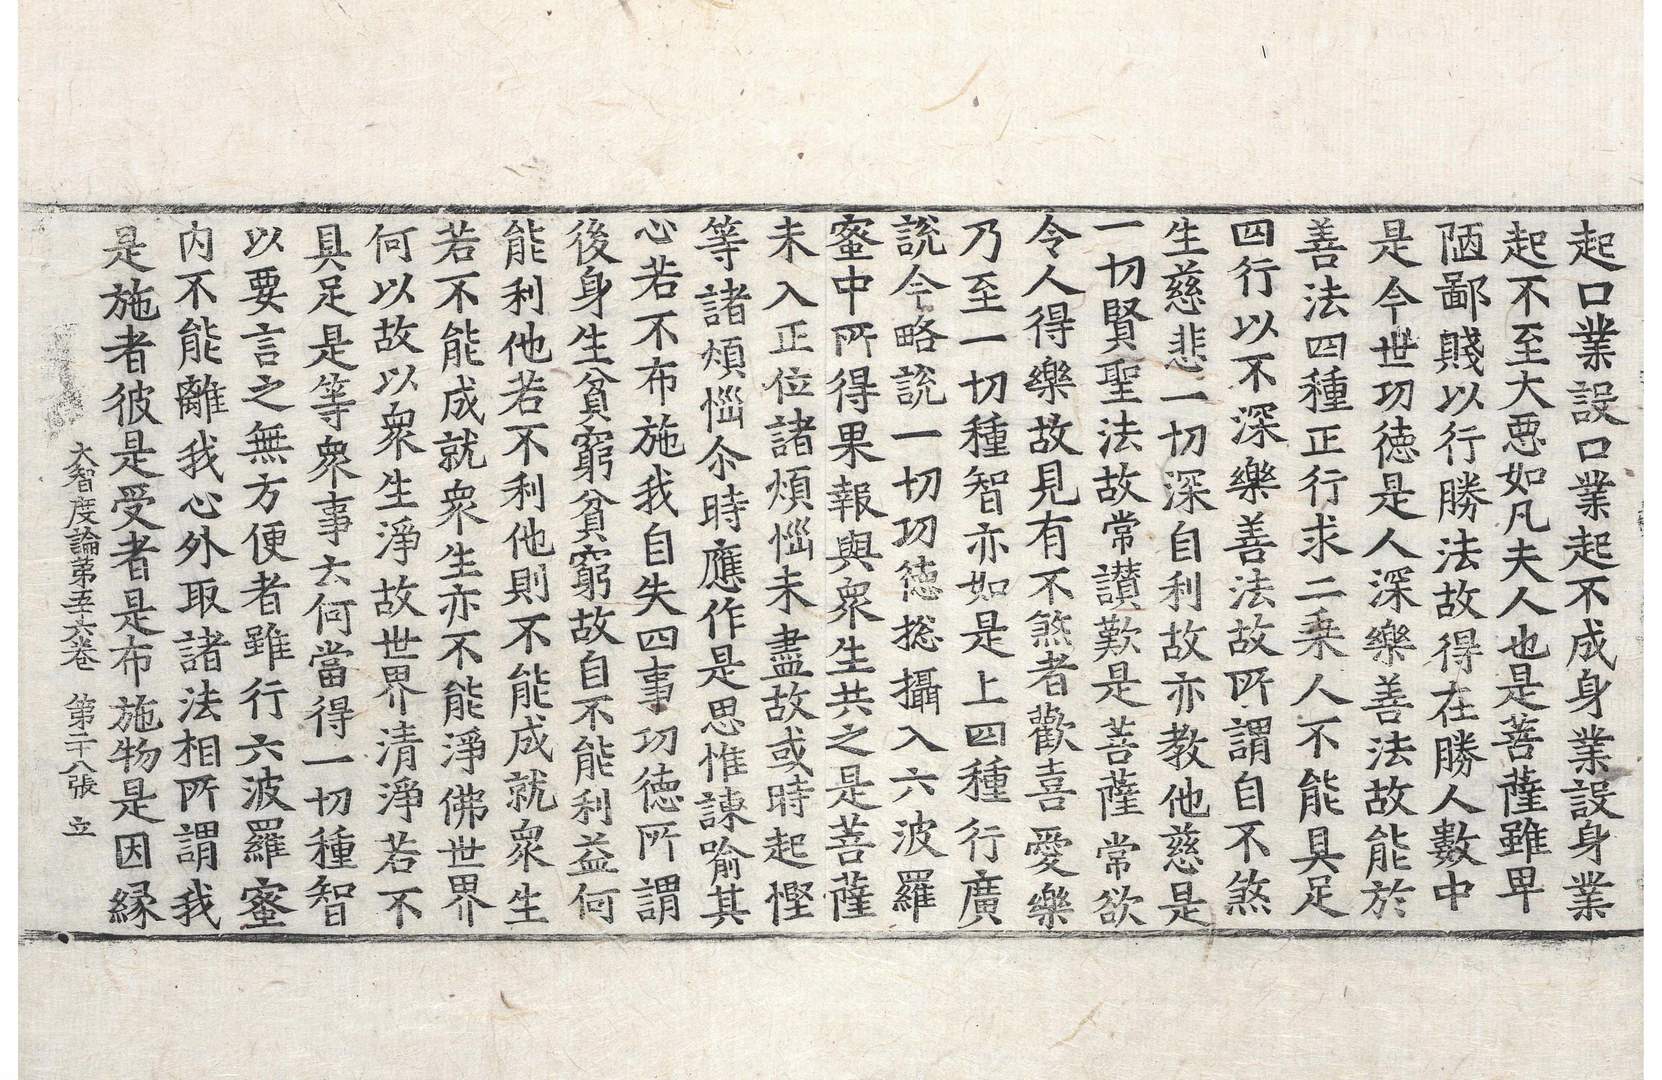 起口業設口業起不成身業設身業
起不至大惡如凡夫人也是菩薩雖畢
陋鄙賤以行勝法故得在勝人數中
是今世功德是人深樂善法故能於
善法四種正行求二乘人不能具足
四行以不深樂善法故所謂自不煞
生慈悲一切深自利故亦教他慈是
一切賢聖法故常讃歎是菩薩常欲
令人得樂故見有不煞者歡喜愛樂
乃至一切種智亦如是上四種行廣
說今略說一切功德捴攝入六波羅
蜜中所得果報與衆生共之是菩薩
未入正位諸煩惱未盡故或時起慳
等諸煩惱尒時應作是思惟諫喻其
心若不布施我自失四事功德所謂
後身生貧窮貧窮故自不能利益何
能利他若不利他則不能成就衆生
若不能成就衆生亦不能淨佛世界
何以故以衆生淨故世界清淨若不
具足是等衆事云何當得一切種智
以要言之無方便者雖行六波羅蜜
內不能離我心外取諸法相所謂我
是施者彼是受者是布施物是因緣
大智度論第五十六卷 第二十八張 立